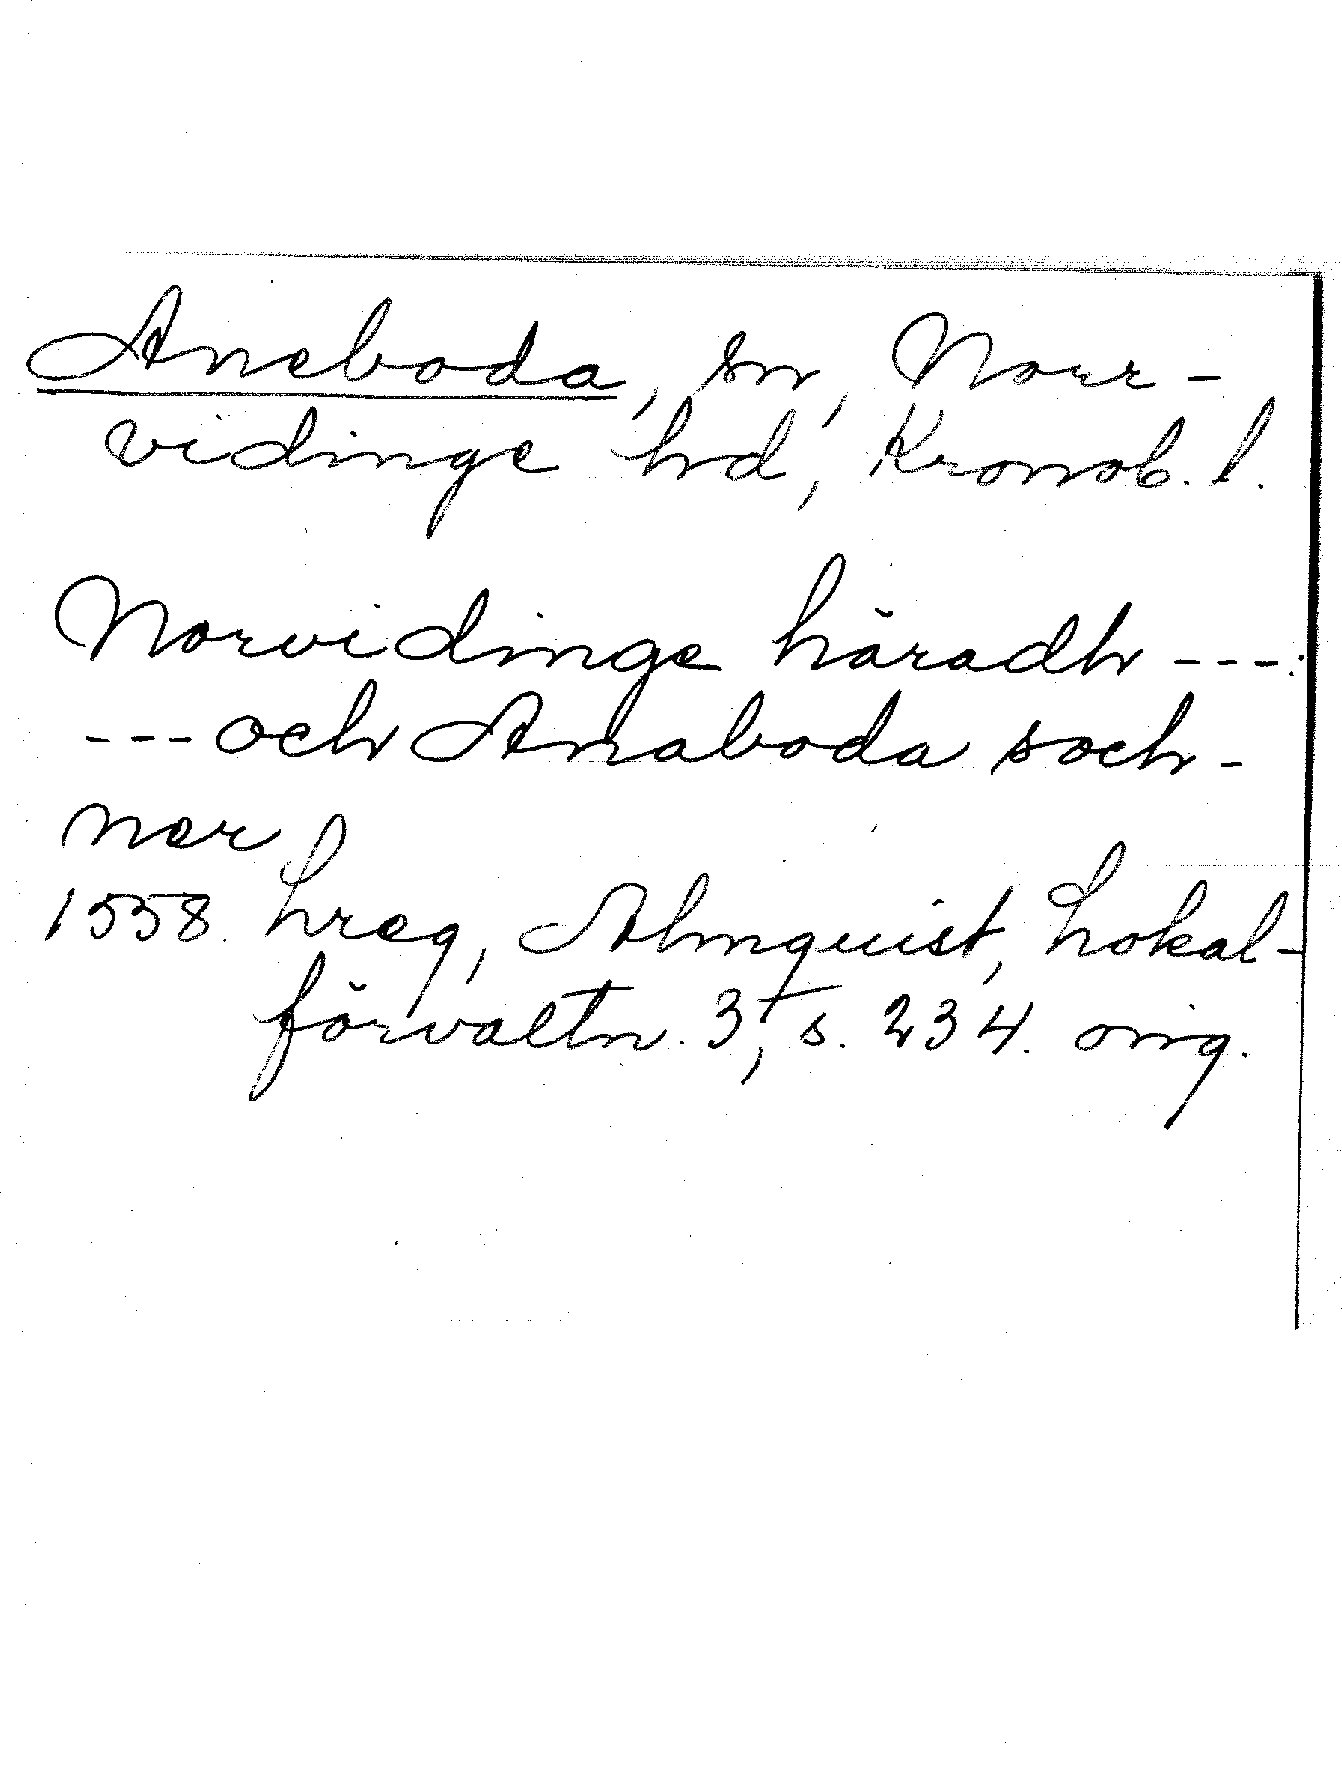 Aneboda, sn, Norr-
vidinge hd, Kronob. l.
Norvidinge häradh ---:
--- och Anaboda soch-
ner
1558 Lreg, Almquist, Lokal-
förvaltn. 3, s. 234. orig.